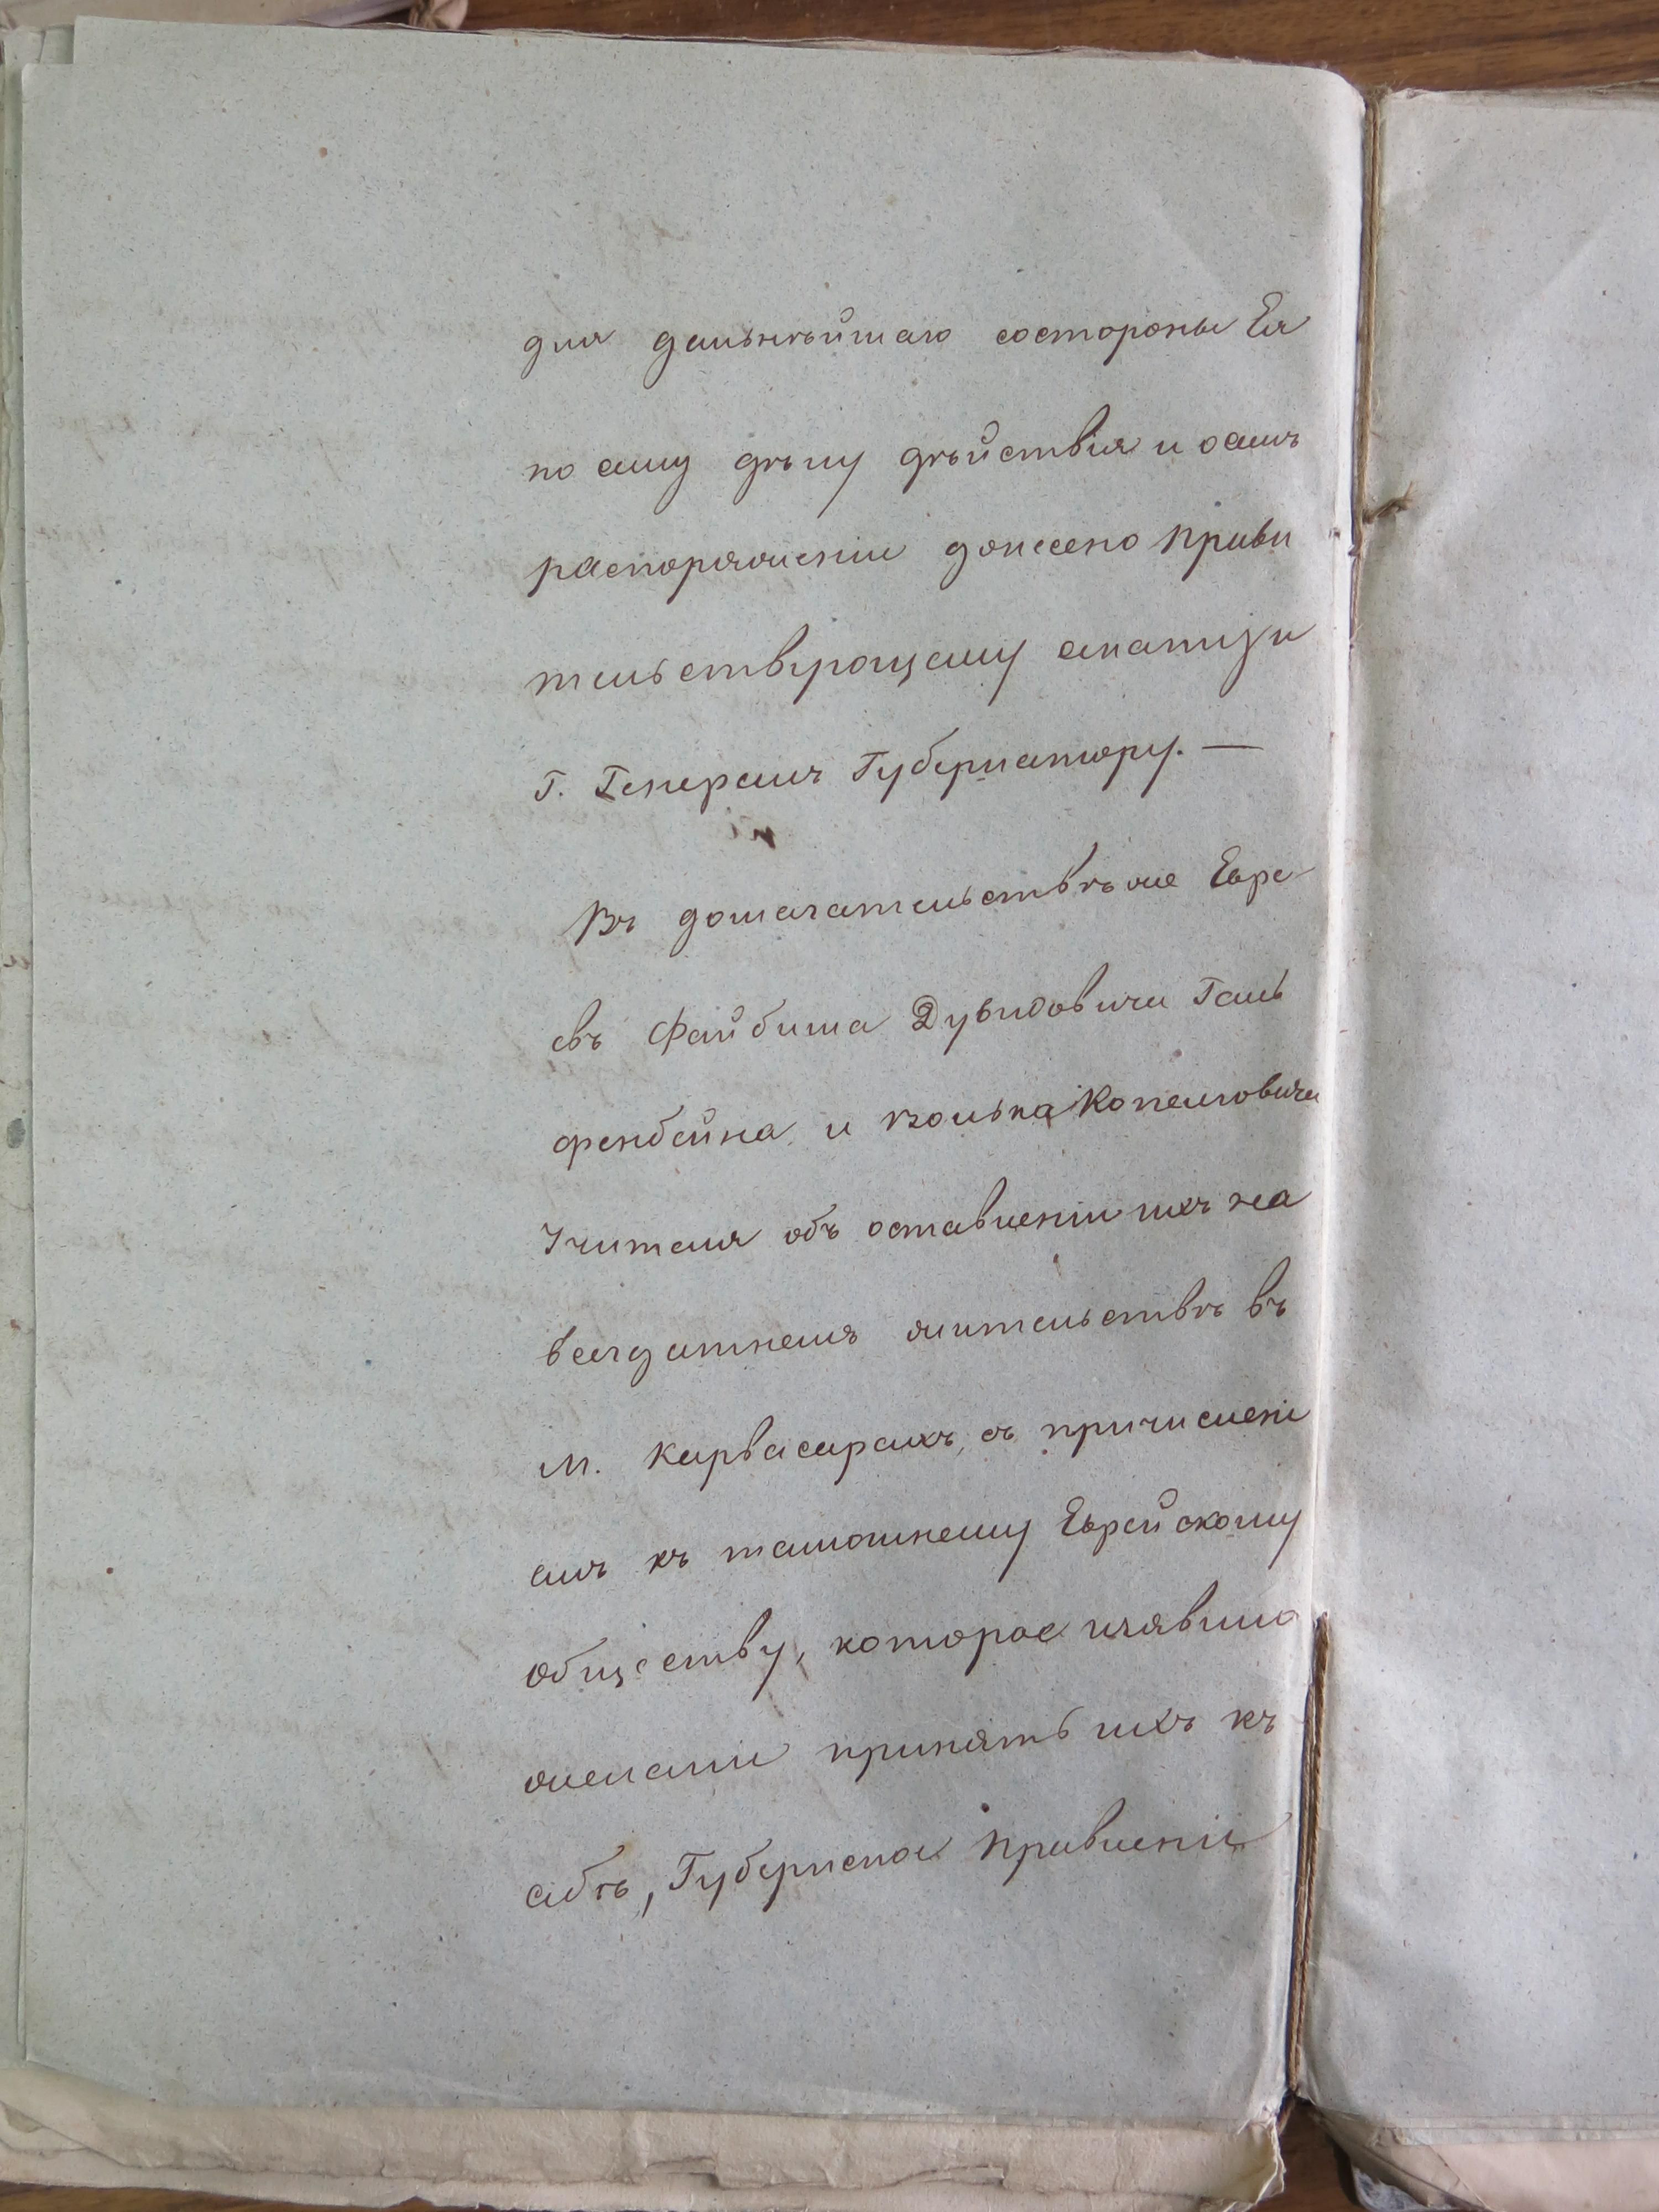 для дальнѣйшаго состороны Ея
по сему дѣлу дѣйствія и осемъ
распоряженіи донесено Прави
тельствующему сенату и
Г. Генералъ Губернатору. —
Въ домагательствѣ же Евре
евъ Файбиша Дувидовича Гель
фенбейна и Волька Копелиовича
Учителя объ оставленіи ихъ на
всегдашнемъ жительствѣ въ
м. Карвасарахъ, съ причислені
емъ къ тамошнему Еврейскому
обществу, которое изъявило
желаніе принять ихъ къ
себѣ, Губернское Правленіе